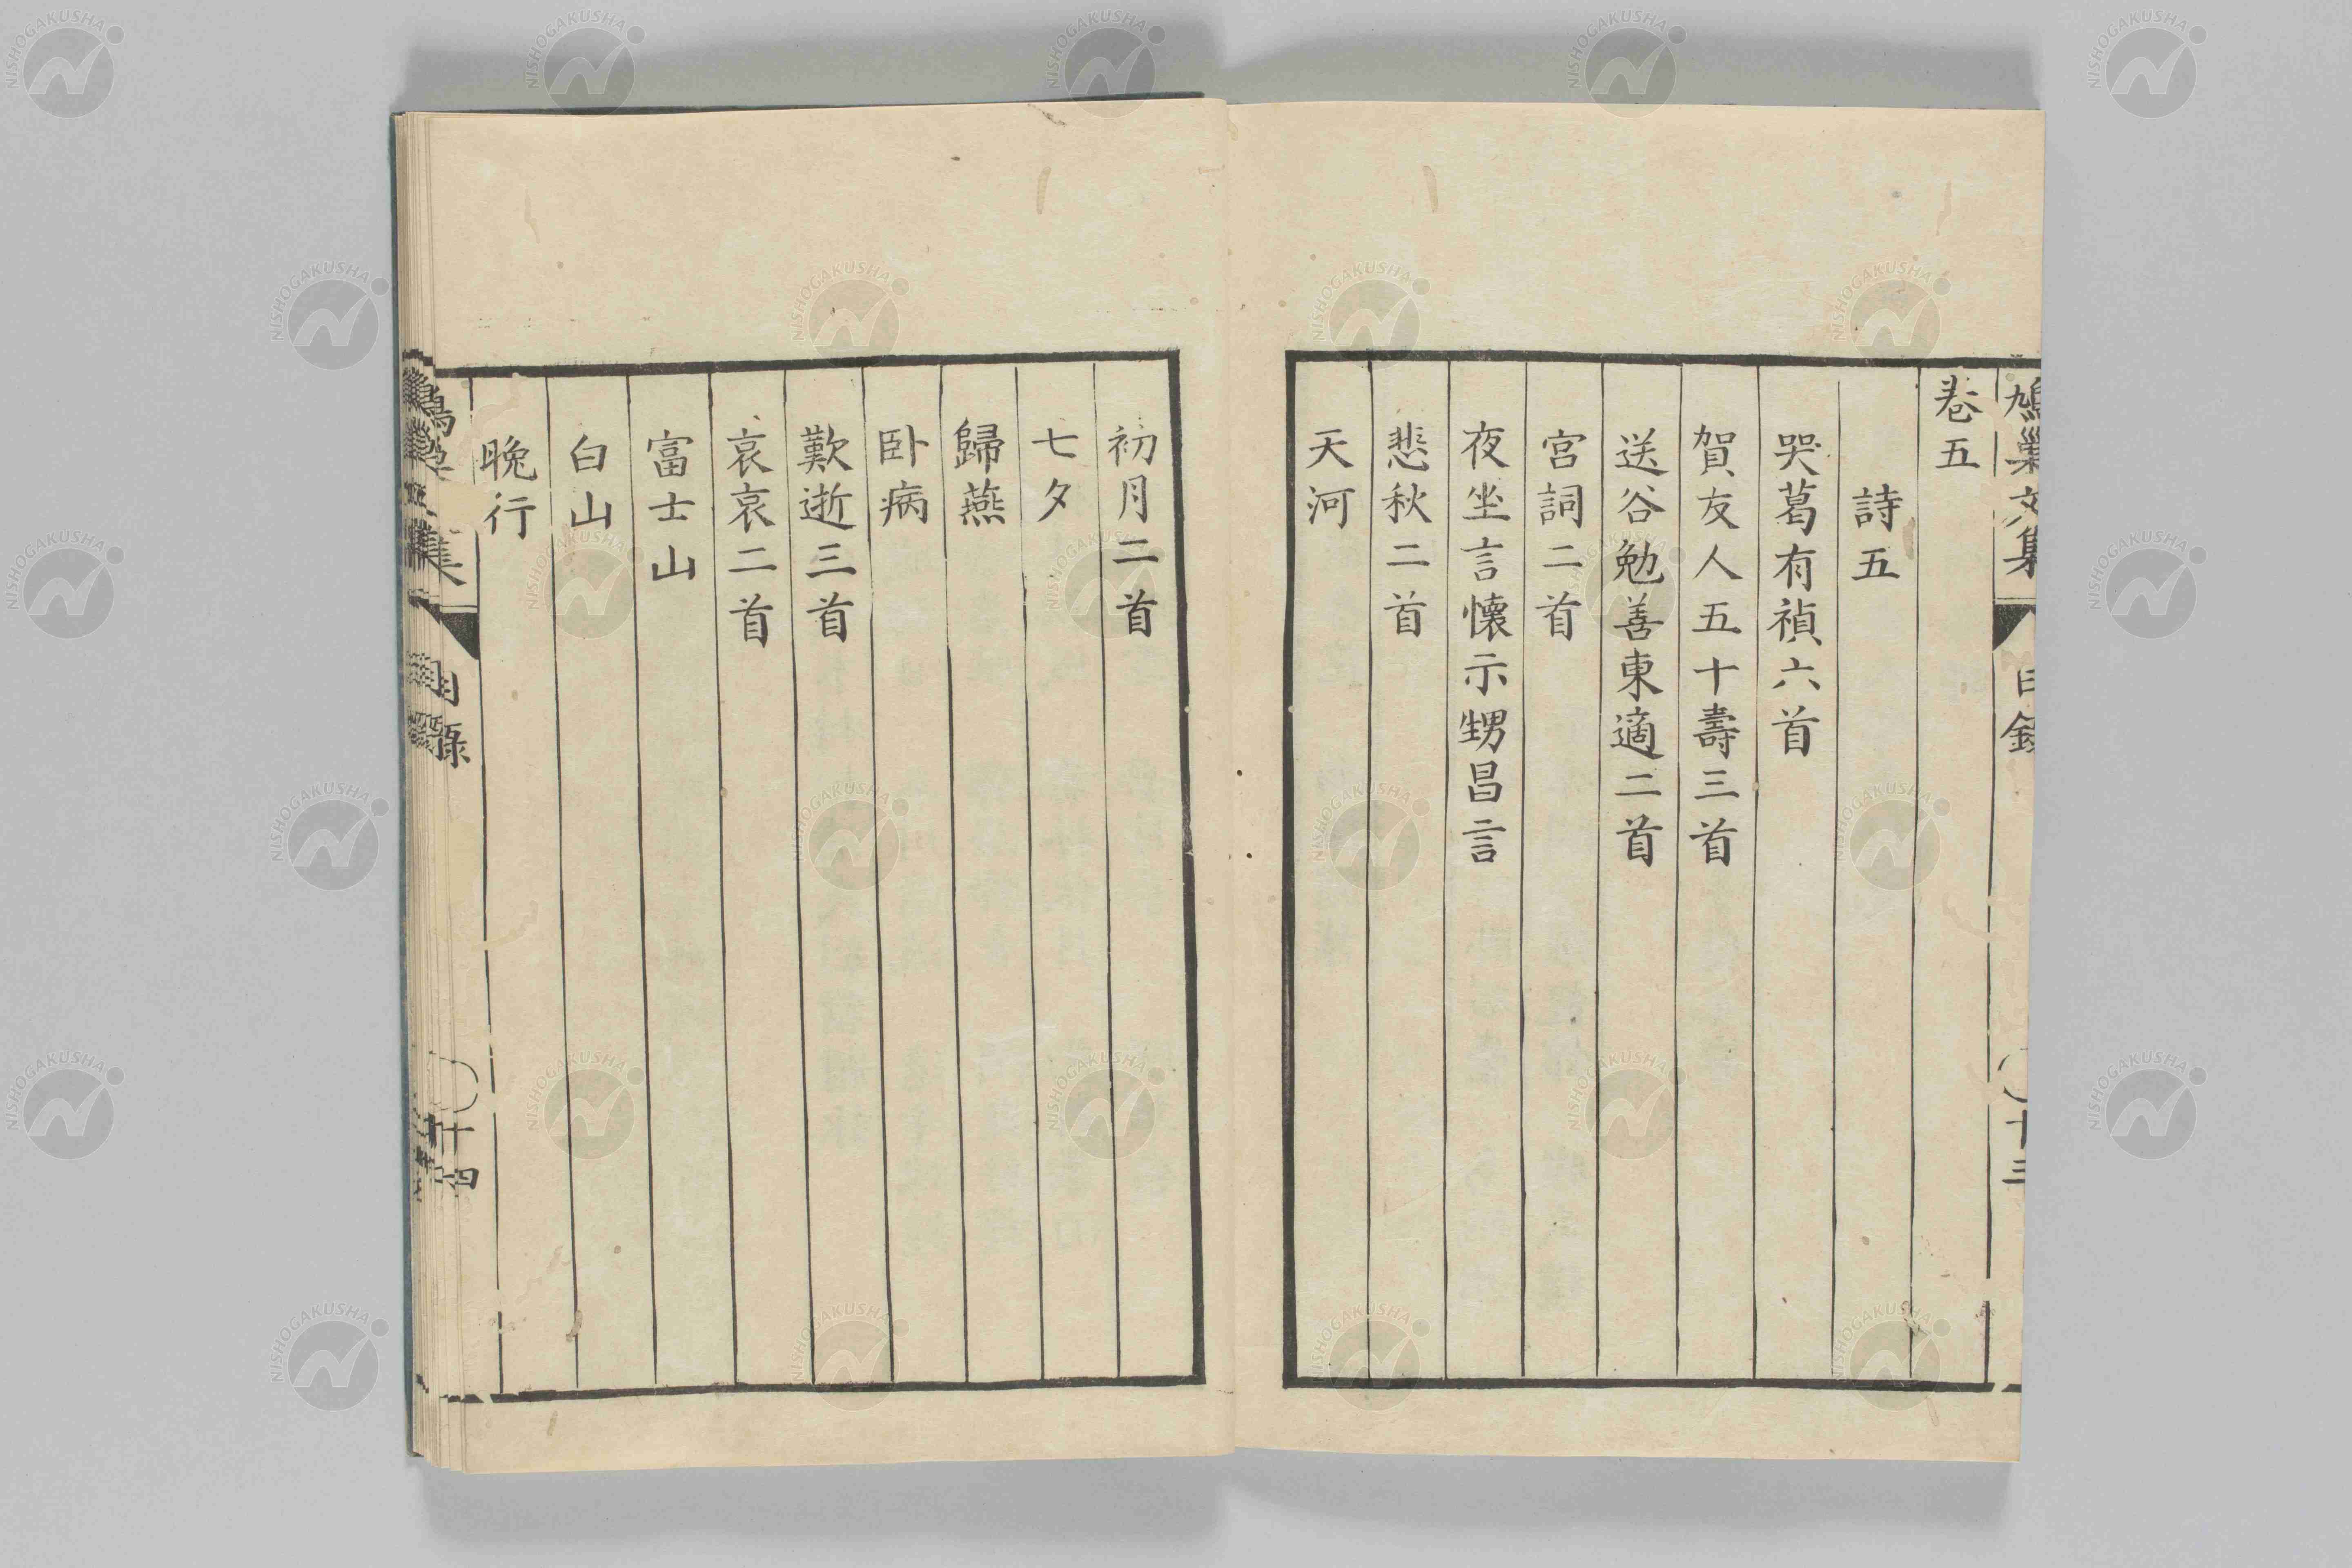 鳩巢文集
目錄
十三
卷五
詩五
哭葛有禎六首
賀友人五十壽三首
送谷勉善東適二首
宮詞二首
夜坐言懷示甥昌言
悲秋二首
天河
初月二首
七夕
歸燕
卧病
歎逝三首
哀哀二首
富士山
白山
晚行
目錄
十四
NISHOGAKUSHA